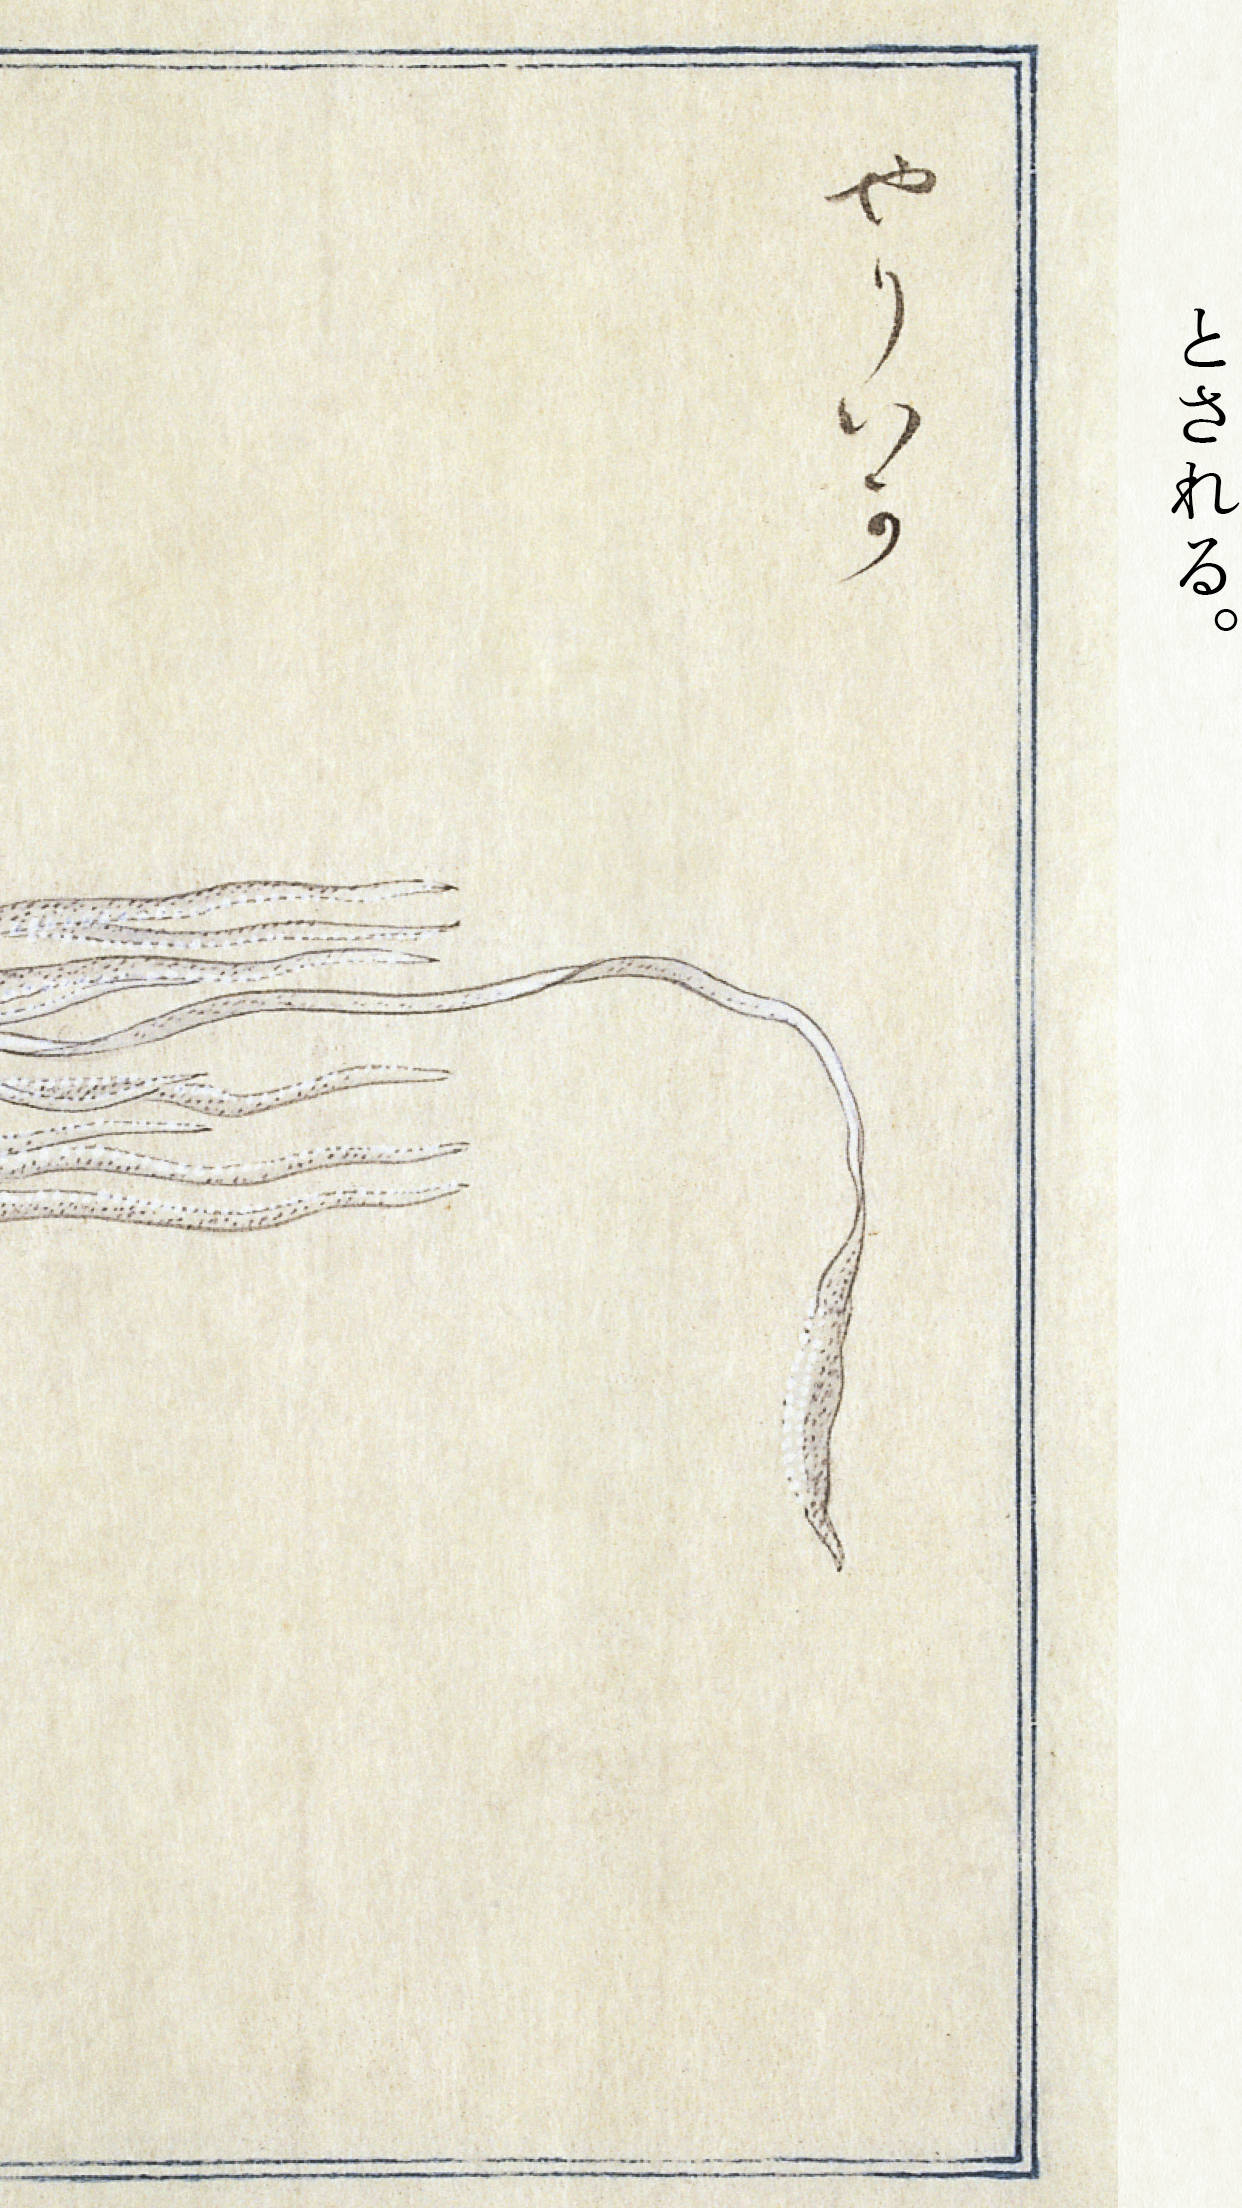 とされる。
やりいか